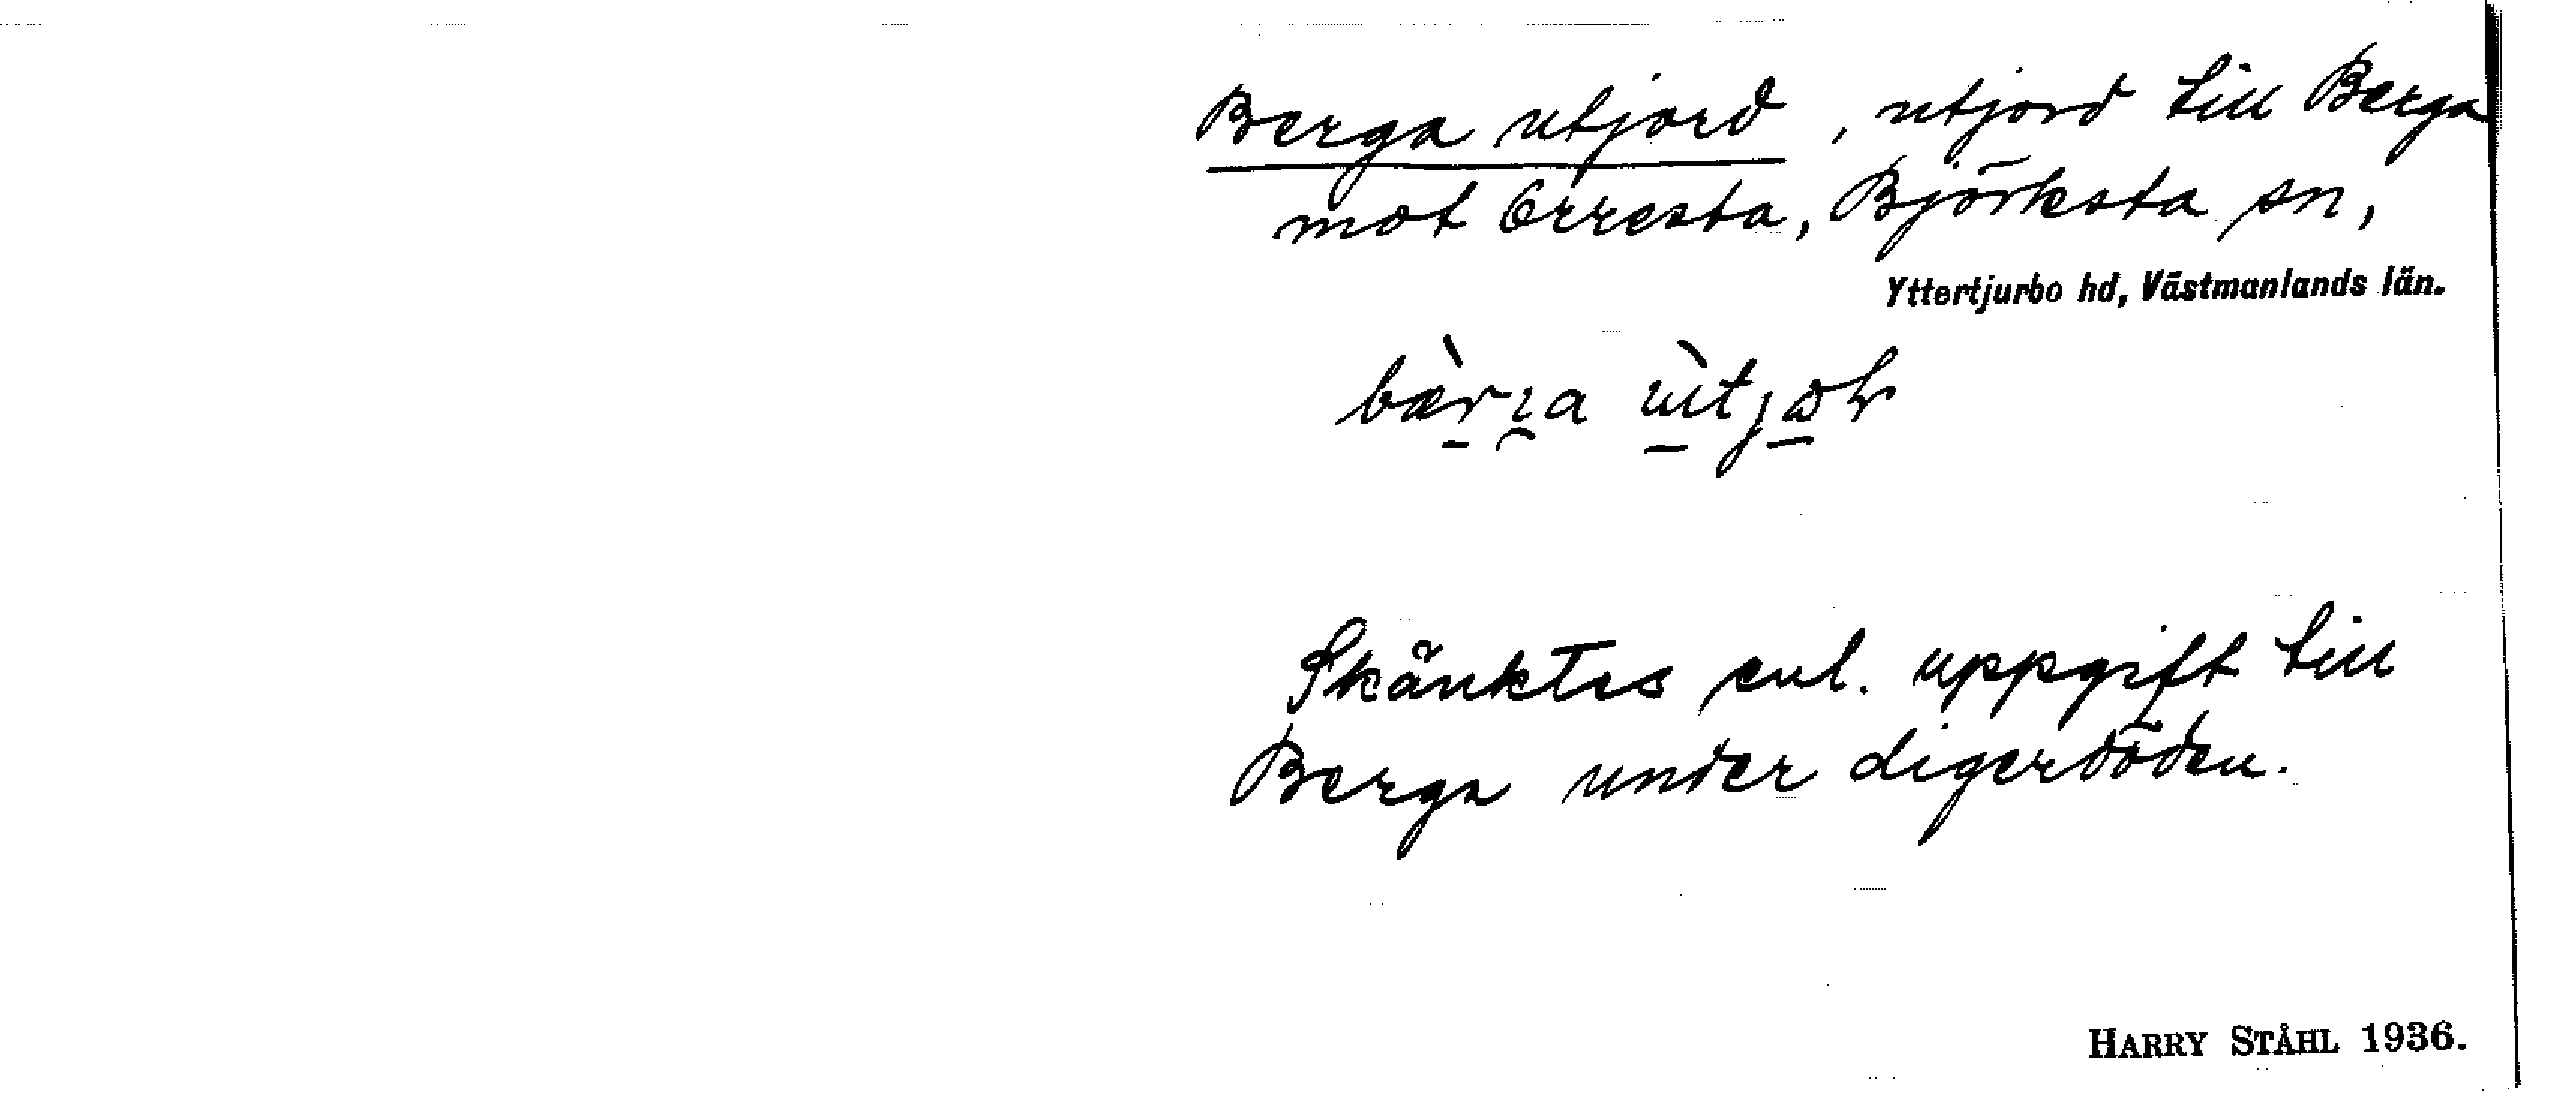 Berga utjord, utjord till Berga
mot Orresta, Björksta sn,
Yttertjurbo hd, Västmanlands län.
Skänktes enl. uppgift till
Berga under digerdöden.
HARRY STÅHL 1936.